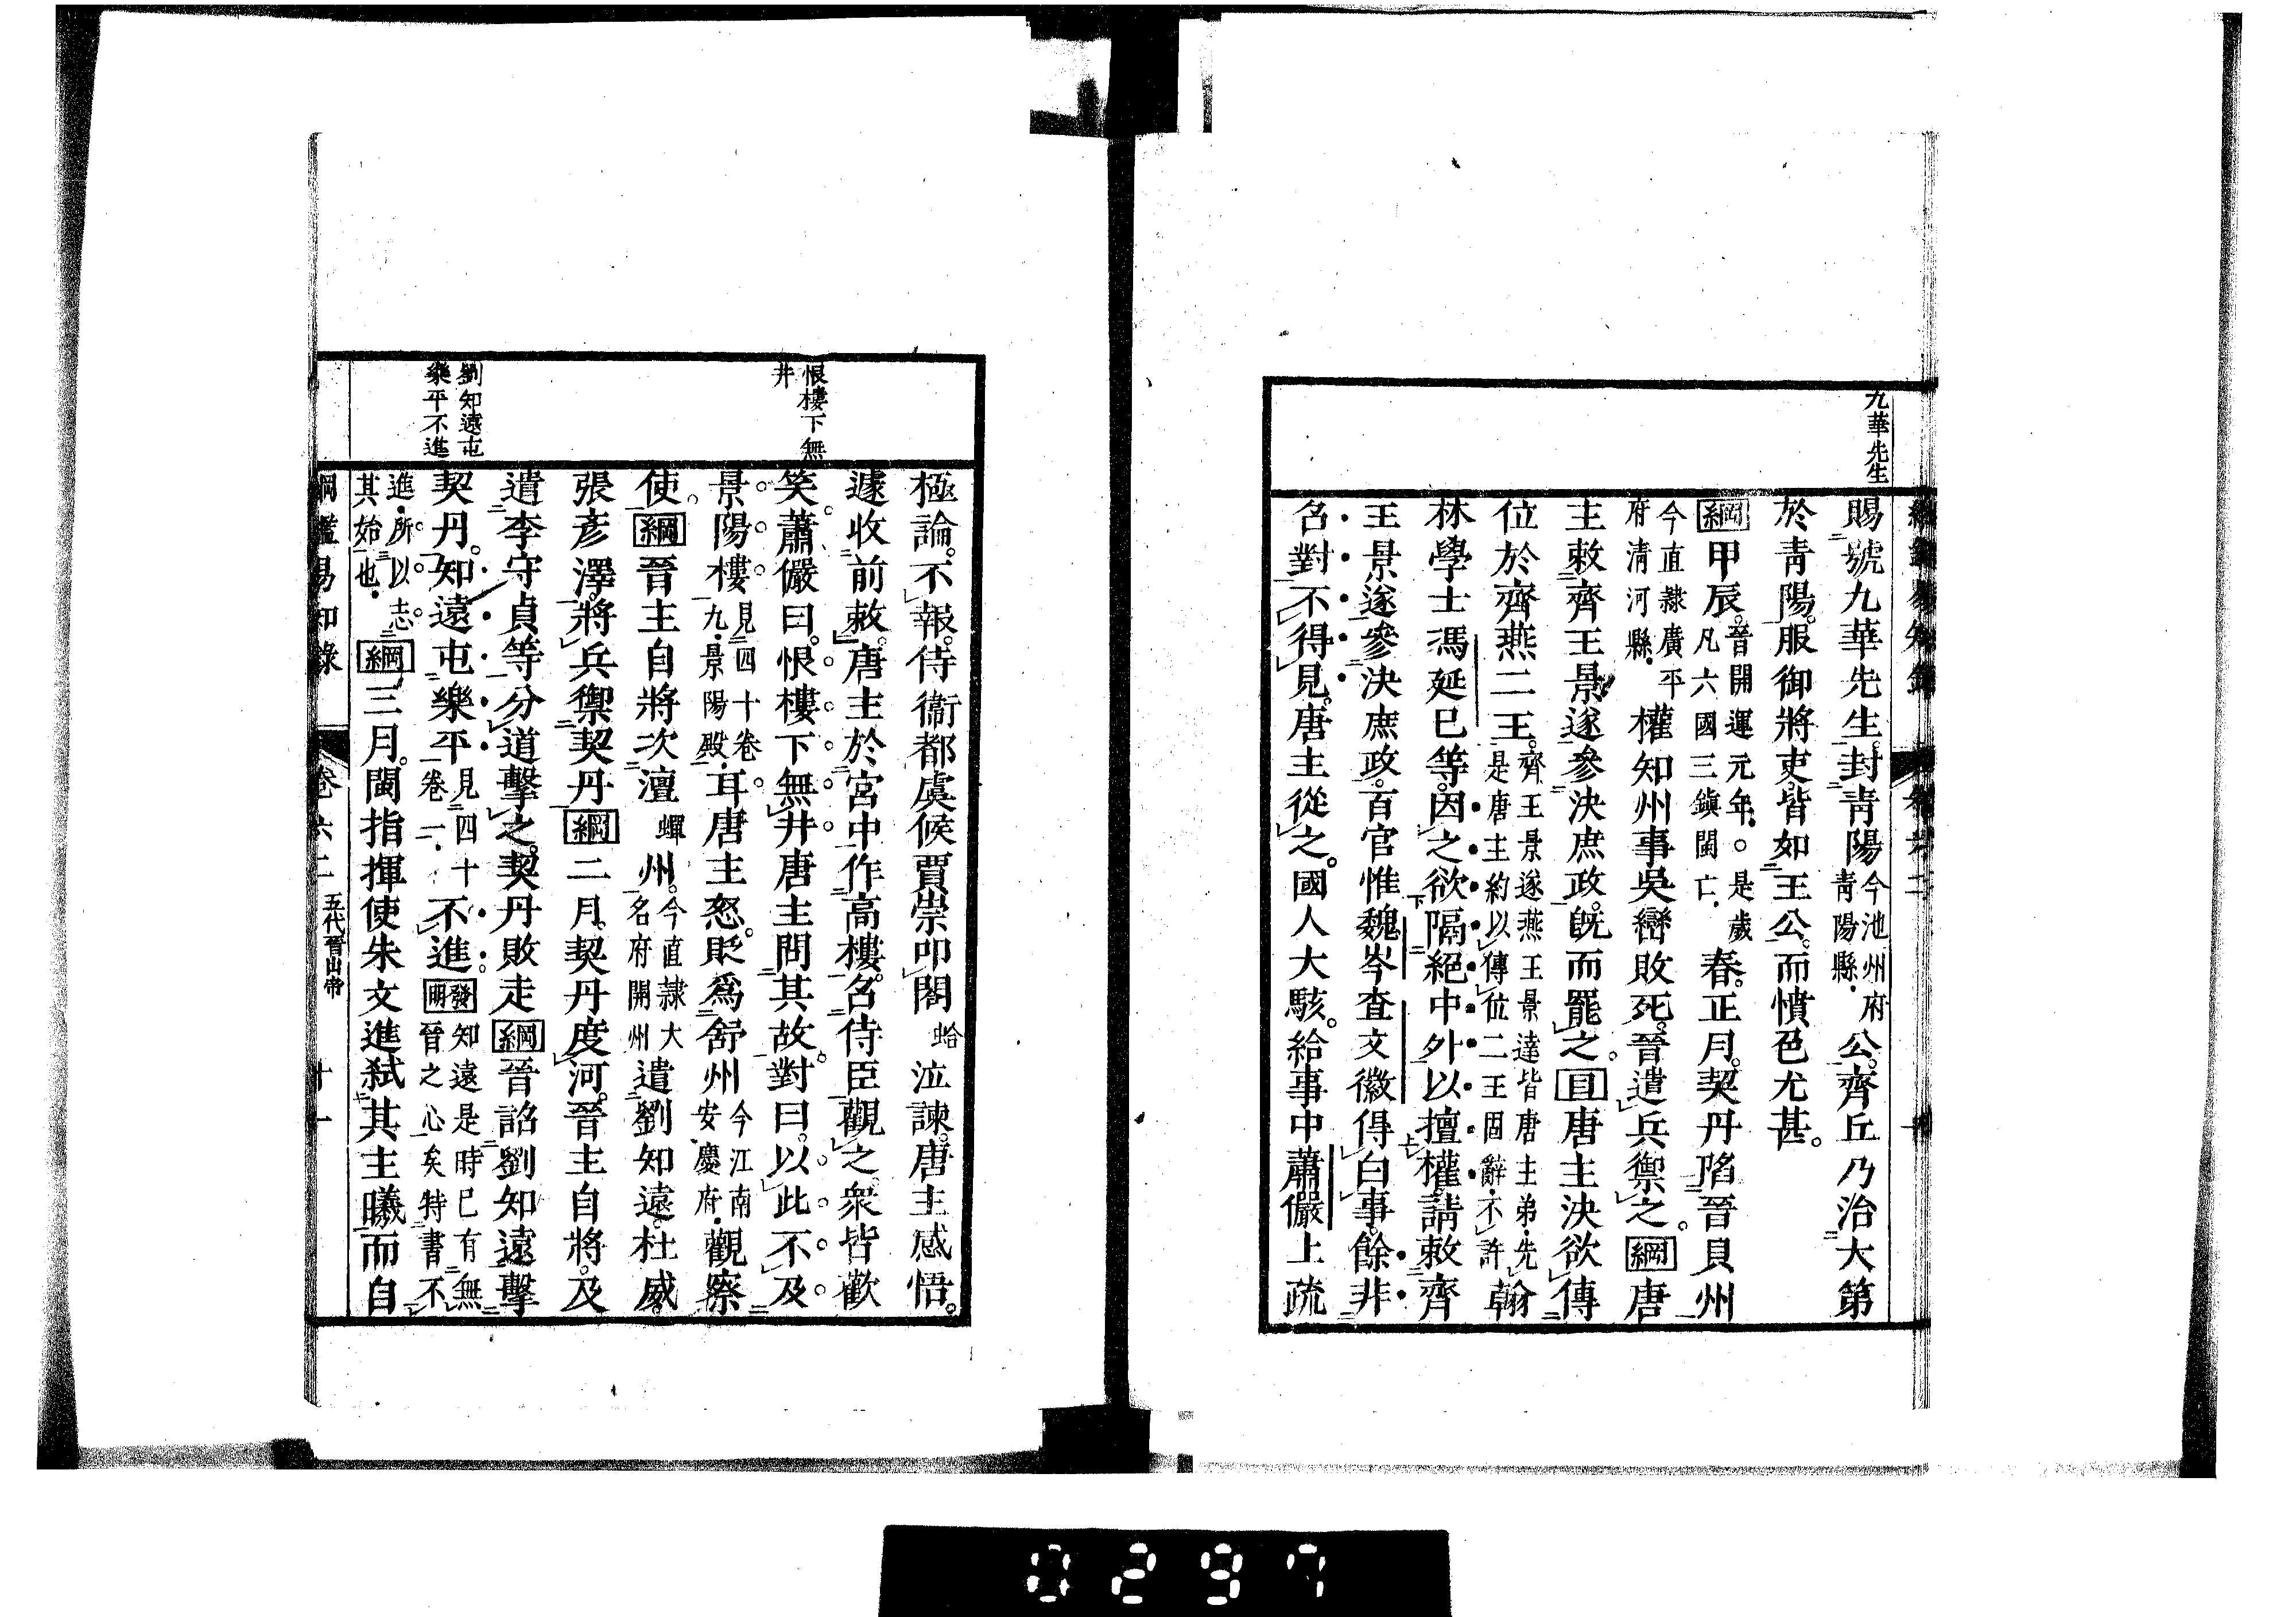 九華先生
賜號九華先生。封靑陽今池州府靑陽縣．公。齊丘乃治大第
於靑陽。服御將吏。皆如王公。而憤色尤甚。
綱甲辰。晉開運元年。○是歲凡六國三鎭閩亡．春。正月。契丹陷晉貝州
今直隷廣平府淸河縣．權知州事吳巒敗死。晉遣兵禦之。綱唐
主敕齊王景遂參決庶政。旣而罷之。目唐主決欲傳
位於齊燕二王。齊王景遂燕王景達皆唐主弟．先是唐主約以傳位二王固辭．不許翰
林學士馮延巳等。因之欲隔絕中外以擅權。請敕齊
王景遂參決庶政。百官惟魏岑查文徽得白事。餘非
召對不得見。唐主從之。國人大駭。給事中蕭儼上疏
恨樓下無井
劉知遠屯樂平不進
極論。不報。侍衞都虞候賈崇叩閤蛤泣諫。唐主感悟。
遽收前敕。唐主於宮中作高樓。召侍臣觀之。衆皆歡
笑。蕭儼曰。恨樓下無井唐主問其故。對曰。以此不及
景陽樓見四十卷九．景陽殿．耳唐主怒。貶爲舒州今江南安慶府．觀察
使。綱晉主自將次澶蟬州。今直隷大名府開州遣劉知遠。杜威。
張彥澤。將兵禦契丹綱二月。契丹度河。晉主自將。及
遣李守貞等分道擊之。契丹敗走綱晉詔劉知遠擊
契丹。知遠屯樂平見四十卷一．不進。發明知遠是時已有無晉之心矣特書不
進．所以志其始也．綱三月。閩指揮使朱文進弑其主曦而自
綱鑑易知錄 卷六二 五代晉出帝 十一